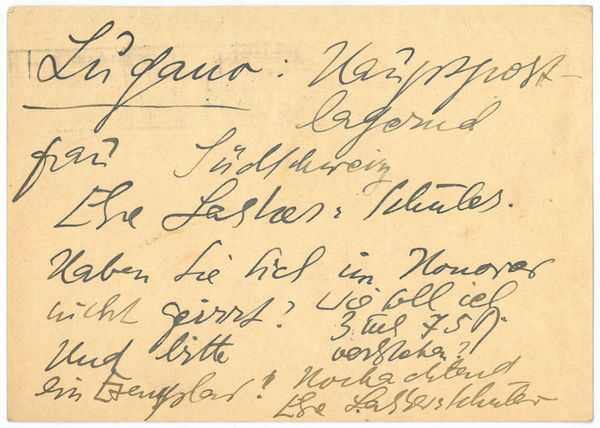 Lugano: Hauptpost-
lagernd
Frau Südschweiz
Else Lasker-Schüler.
Haben Sie sich im Honorar
nicht geirrt? Wie soll ich
3 75
Und bitte verstehen?
ein Exemplar! Hochachtend
Else Lasker-Schüler